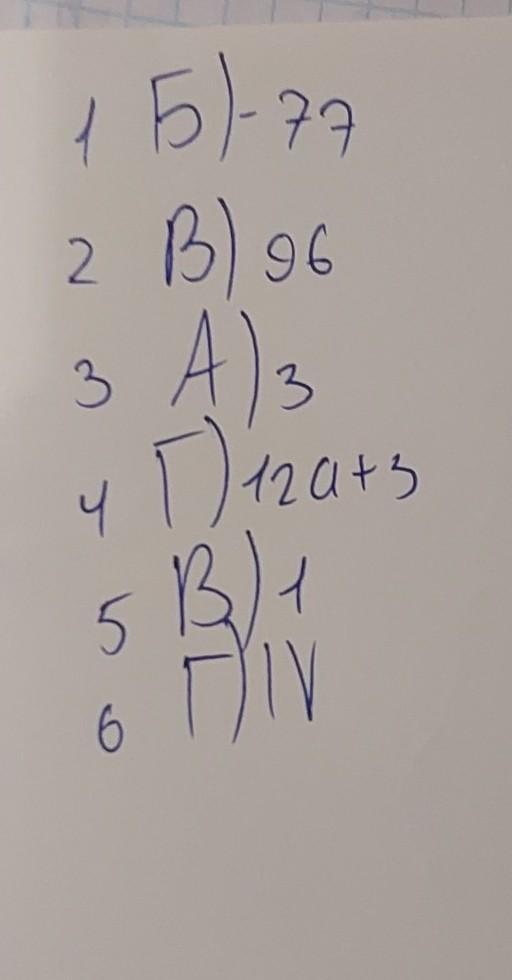 1 Б) -77
2 В) 96
3 А) 3
4 Г) 12a+3
5 В) 1
6 Г) IV